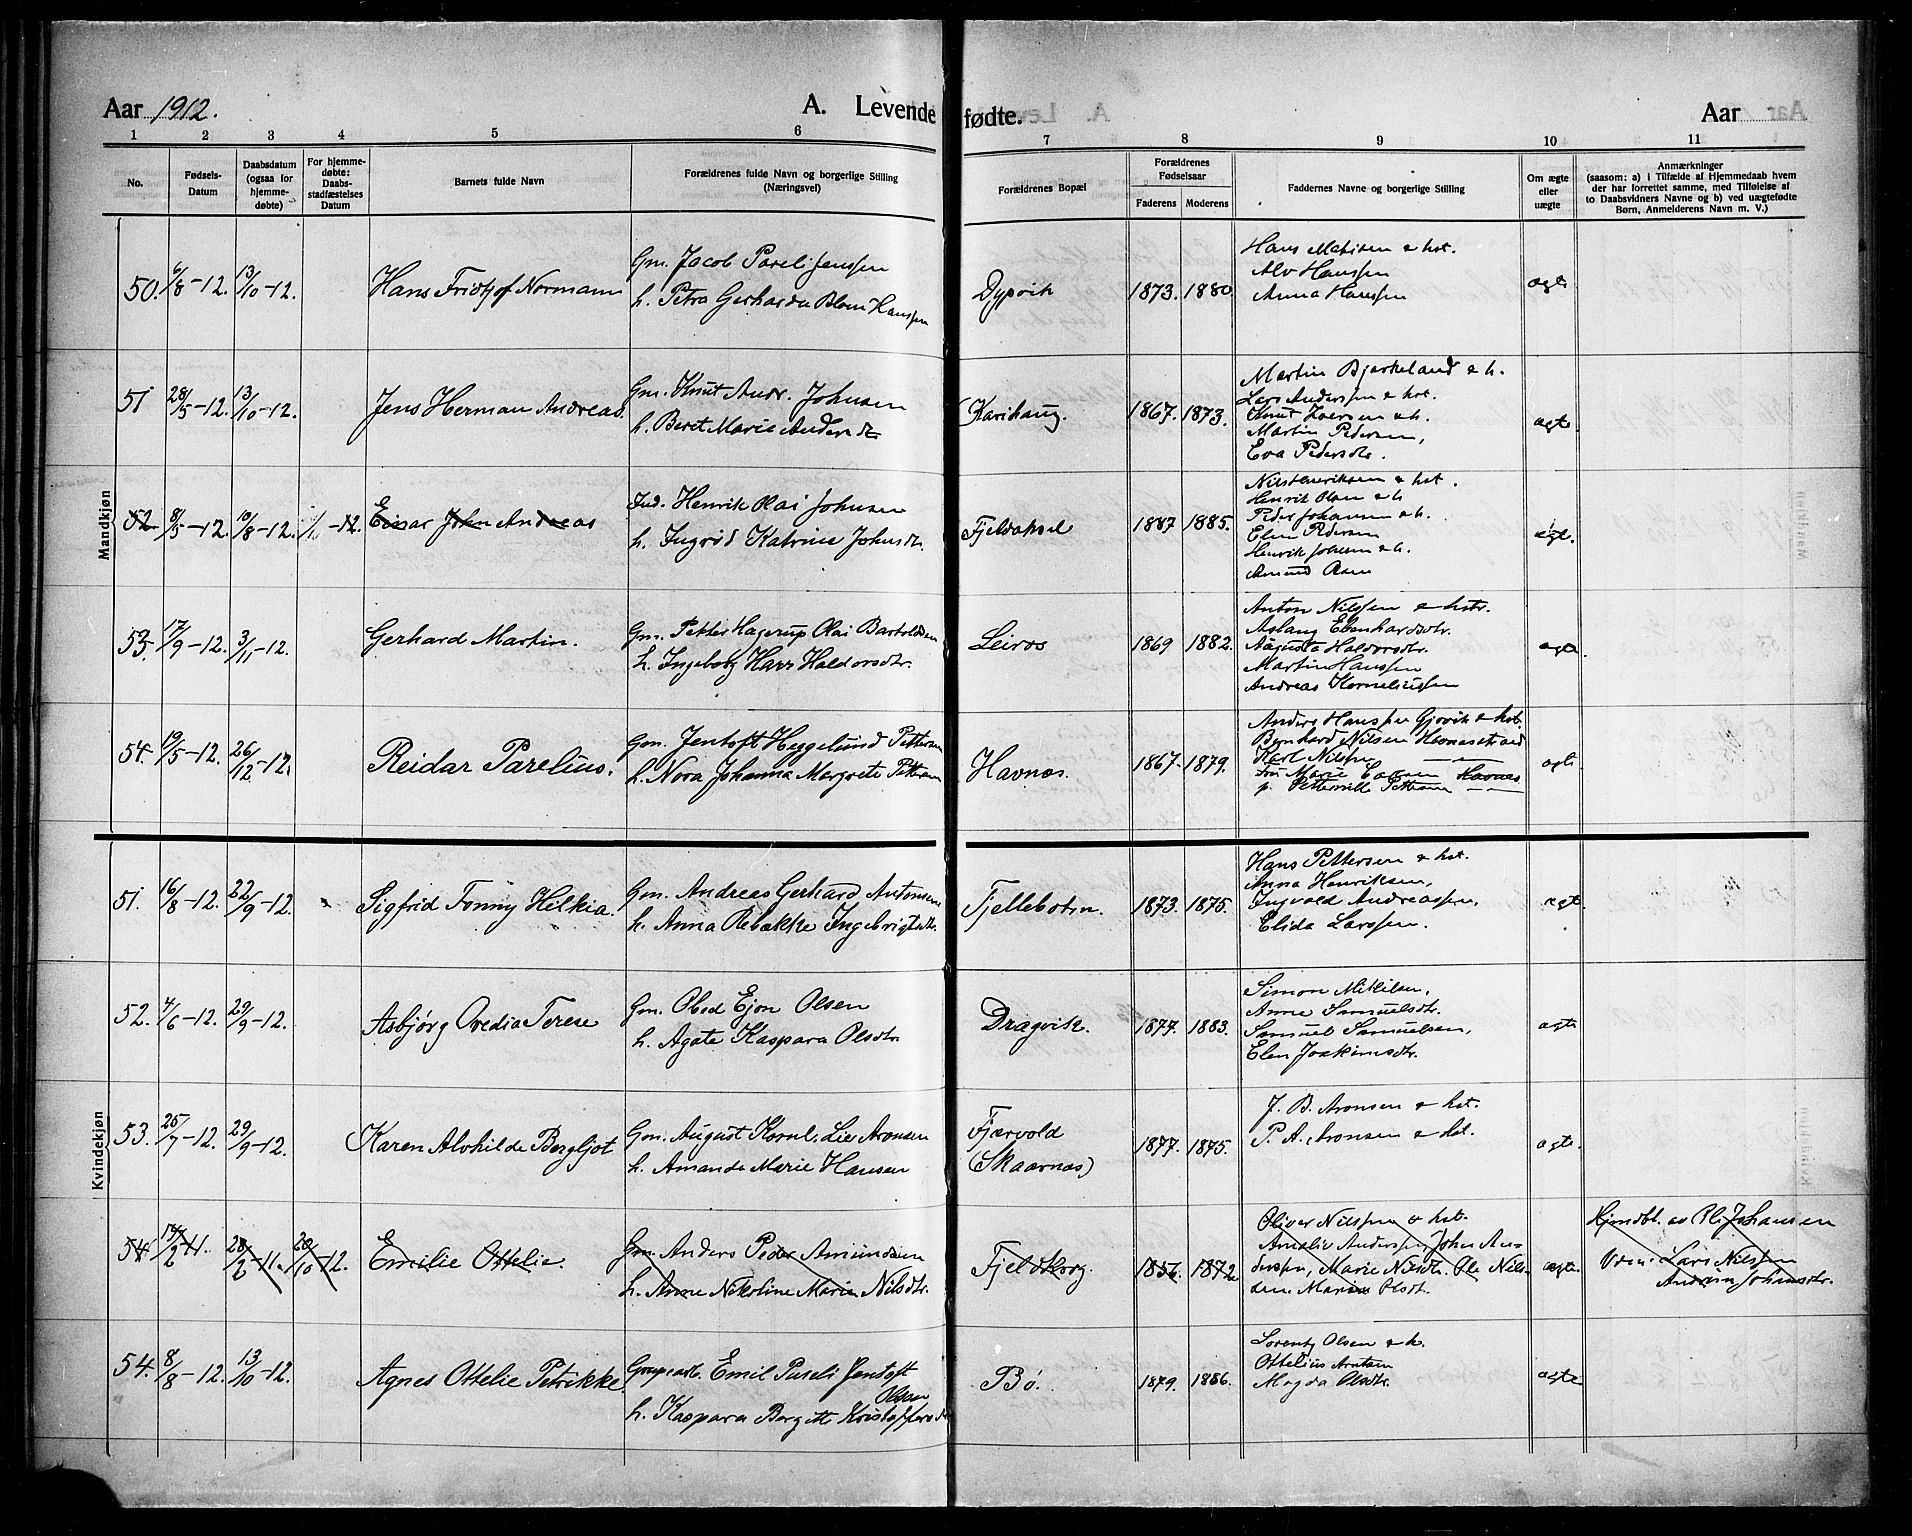 Aar 1912.
A. Levende fødte.
Aar
1 2 3 4 5 6 7 8 9 10 11
No.
Fødsels-
Datum
Daabsdatum
(ogsaa for
hjemme-
døbte)
For hjemme-
døbte:
Daabs-
stadfæstelses
Datum
Barnets fulde Navn
Forældrenes fulde Navn og borgerlige Stilling
(Næringsvei)
Forældrenes Bopæl
Forældrenes
Fødselsaar
Faderens Moderens
Faddernes Navne og borgerlige Stilling
Om ægte
eller
uægte
Anmærkninger
(saasom: a) i Tilfælde af Hjemmedaab hvem
der har forrettet samme, med Tilføielse af
to Daabsvidners Navne og b) ved uægtefødte
Børn, Anmelderens Navn m. V.)
Mandkjøn
50. 6/8-12. 13/10-12. Hans Fridtjof Normann
Gm. Jacob Pareli Jenssen
h. Petra Gerharda Blom Hanssen
Dypvik 1873. 1880
Hans Mathisen & hst.
Alv Hanssen
Anna Hanssen
ægte
51 28/5-12. 13/10-12. Jens Herman Andreas.
Gm. Knut Andr. Johnsen
h. Beret Marie Andersdtr
Karihaug. 1867. 1873.
Martin Bjerkeland & h.
Lars Anderssen & hst.
Knut & h.
Martin Pedersen,
Eva Pedersdtr.
ægte
52 8/5-12. 10/8-12. -12. Einar John Andreas
Ind. Henrik Olai Johnsen
h. Ingrid Katrine Johnsdtr.
Fjeldaksel 1887 1885.
Nils Henriksen & hst.
Henrik Olsen & h
Peder Johansen & h.
Elen Pedersen
Henrik Johnsen & h.
Amund Olsen
ægt.
53. 17/9-12. 3/11-12. Gerhard Martin.
Gm. Petter Hagerup Olai Bartoldsen
h. Ingeborg Harr Haldorsdtr.
Leiros 1869 1882.
Anton Nilssen & hstr.
Aslaug Ebenhardsdtr.
Augusta Haldorsdtr.
Martin Hanssen
Andreas Korneliussen
ægte
54. 19/5-12. 26/12-12. Reidar Parelius.
Gm. Jentoft Heggelund Pettersen
h. Nora Johanna Margrete Pettersen
Havnæs. 1867. 1879.
Anders Hanssen Gjøvik & hst
Bernhard Nilsen Havnæsstrand
Karl Nilssen — —
Fru Marie Havnæs
p. Petterville Pettersen — —
ægte
Kvindekjøn
51. 16/8-12. 22/9-12. Sigfrid Tonny Hilkia.
Gm. Andreas Gerhard Antonsen
h. Anna Rebække Ingebrigtsdtr.
Fjellebotn. 1873. 1875.
Hans Pettersen & hst.
Anna Henriksen,
Ingvald Andreassen,
Elida Larssen.
ægte
52. 4/6-12. 29/9-12. Asbjørg Ovedia Terese
Gm. Obed Ejon Olsen
h. Agate Kaspara Olsdtr
Dragvik. 1877. 1883.
Simon Mikkelsen,
Anne Samuelsdtr.
Samuel Samuelsen,
Elen Joakimsdtr.
ægte
53. 25/7-12. 29/9-12. Karen Alvhilde Bergljot
Gm. August Kornl. Lie Aronsen
h. Amanda Marie Hansen
Fjærvold
(Skaarnæs) 1877. 1875.
J. B. Aronsen & hst.
P. A. Aronsen & hst.
ægte.
54. 19/2-11. 28/2-11. 20/10-12. Emilie Ottelie.
Gm. Anders Peder Amundsen
h. Anne Nikoline Marie Nilsdtr.
Fjeldskog. 1856. 1872
Oliver Nilssen & hst.
Amalie Anderssen John An-
derssen, Marie Nilsdtr. Ole Nils-
sen. Marie Olsdtr.
ægte
Hjemdbt. av Ole Johansen
Vidn: Lars Nilssen
Andrine Johansdtr.
54. 8/8-12. 13/10-12. Agnes Ottelie Petrikke
Grupearb. Emil Pareli Jentoft
Olsen
h. Kaspara Bergitte Kristoffersdtr
Bø. 1879. 1886.
Lorentz Olsen & h.
Ottelius Arntsen
Magda Olsdtr.
ægte